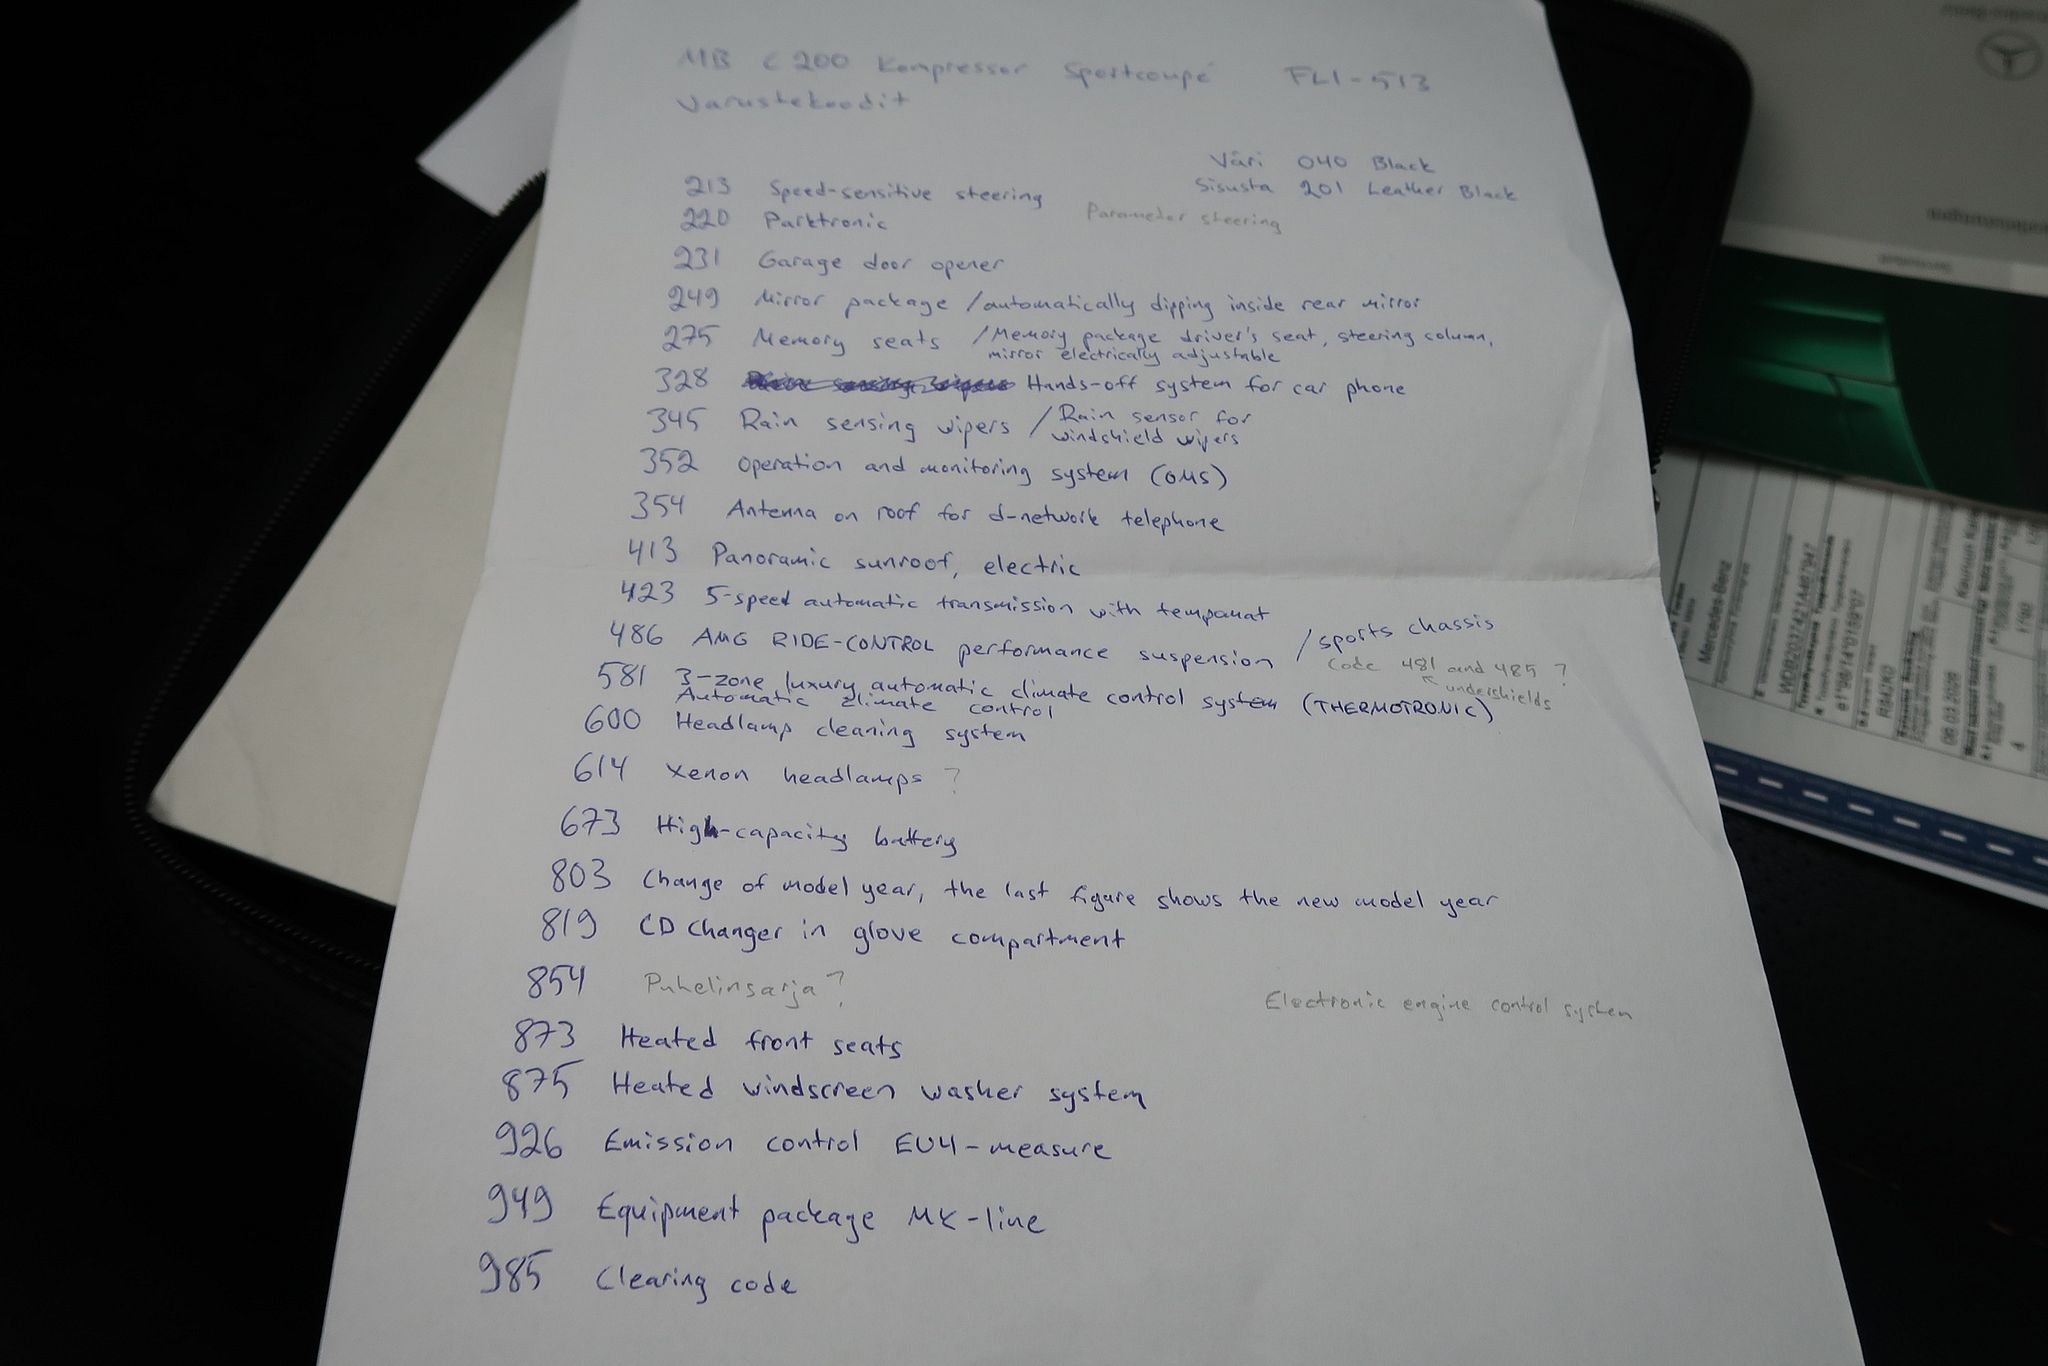 MB C 200 Kompressor Sportcoupé FLI-513
Varustekoodit
Väri 040 Black
Sisusta 201 Leather Black
213 Speed-sensitive steering
Parameter steering
220 Parktronic
231 Garage door opener
249 Mirror package / automatically dipping inside rear mirror
275 Memory seats / Memory package driver's seat, steering column,
mirror electrically adjustable
328 Hands-off system for car phone
345 Rain sensing wipers / Rain sensor for
windshield wipers
352 Operation and monitoring system (OMS)
354 Antenna on roof for d-network telephone
413 Panoramic sunroof, electric
423 5-speed automatic transmission with tempomat
486 AMG RIDE-CONTROL performance suspension / sports chassis
Code 481 and 485 ?
undershields
581 3-zone luxury automatic climate control system (THERMOTRONIC)
Automatic climate control
600 Headlamp cleaning system
614 Xenon headlamps ?
673 High-capacity battery
803 Change of model year, the last figure shows the new model year
819 CD changer in glove compartment
854 Puhelinsarja ?
Electronic engine control system
873 Heated front seats
875 Heated windscreen washer system
926 Emission control EU4-measure
949 Equipment package MK-line
985 Clearing code
Mercedes-Benz